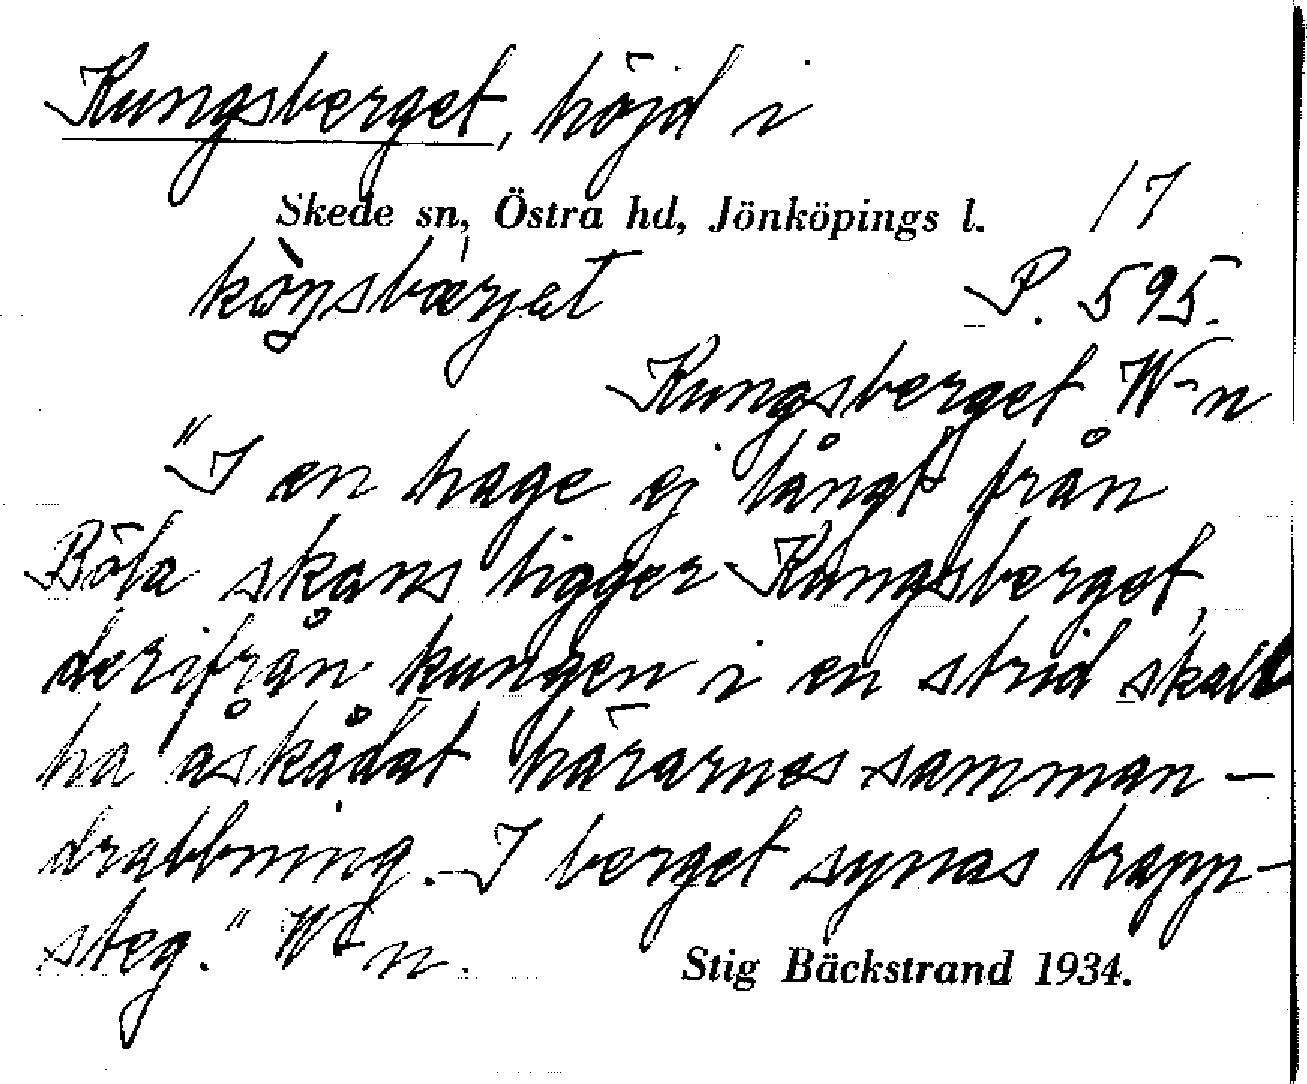 Kungsberget, höjd i
Skede sn, Östra hd, Jönköpings l.
17
P. 595.
Kungsberget W-n
"I en hage ej långt från
Böla skans ligger Kungsberget,
derifrån kungen i en strid skall
ha åskådat härarnes samman-
drabbning. I berget synas trapp-
steg." W-n.
Stig Bäckstrand 1934.